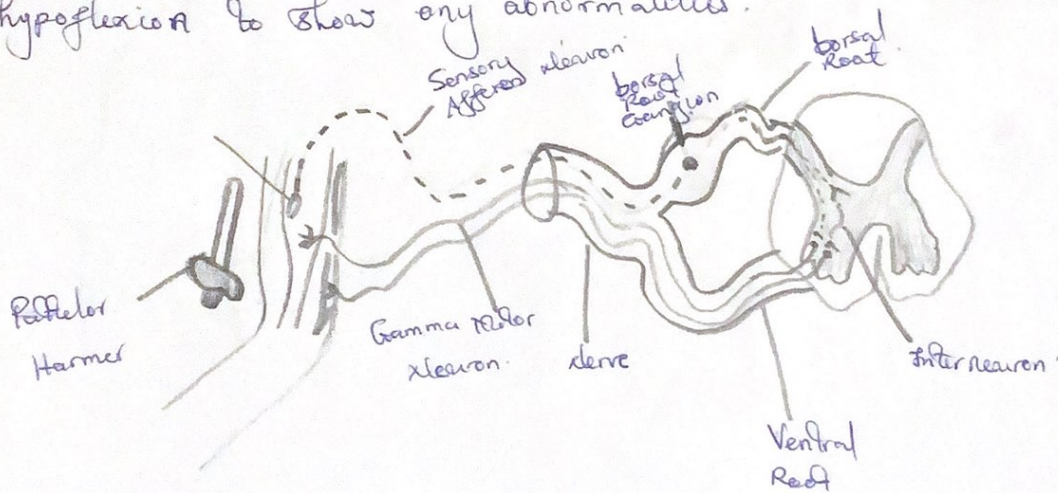 hypoflexion to show any abnormalities.
Sensory Neuron
Affered
Dorsal
Root
Ganglion
Dorsal
Root
Patellor
Hammer
Gamma Motor
Neuron.
Nerve
Interneuron.
Ventral
Root